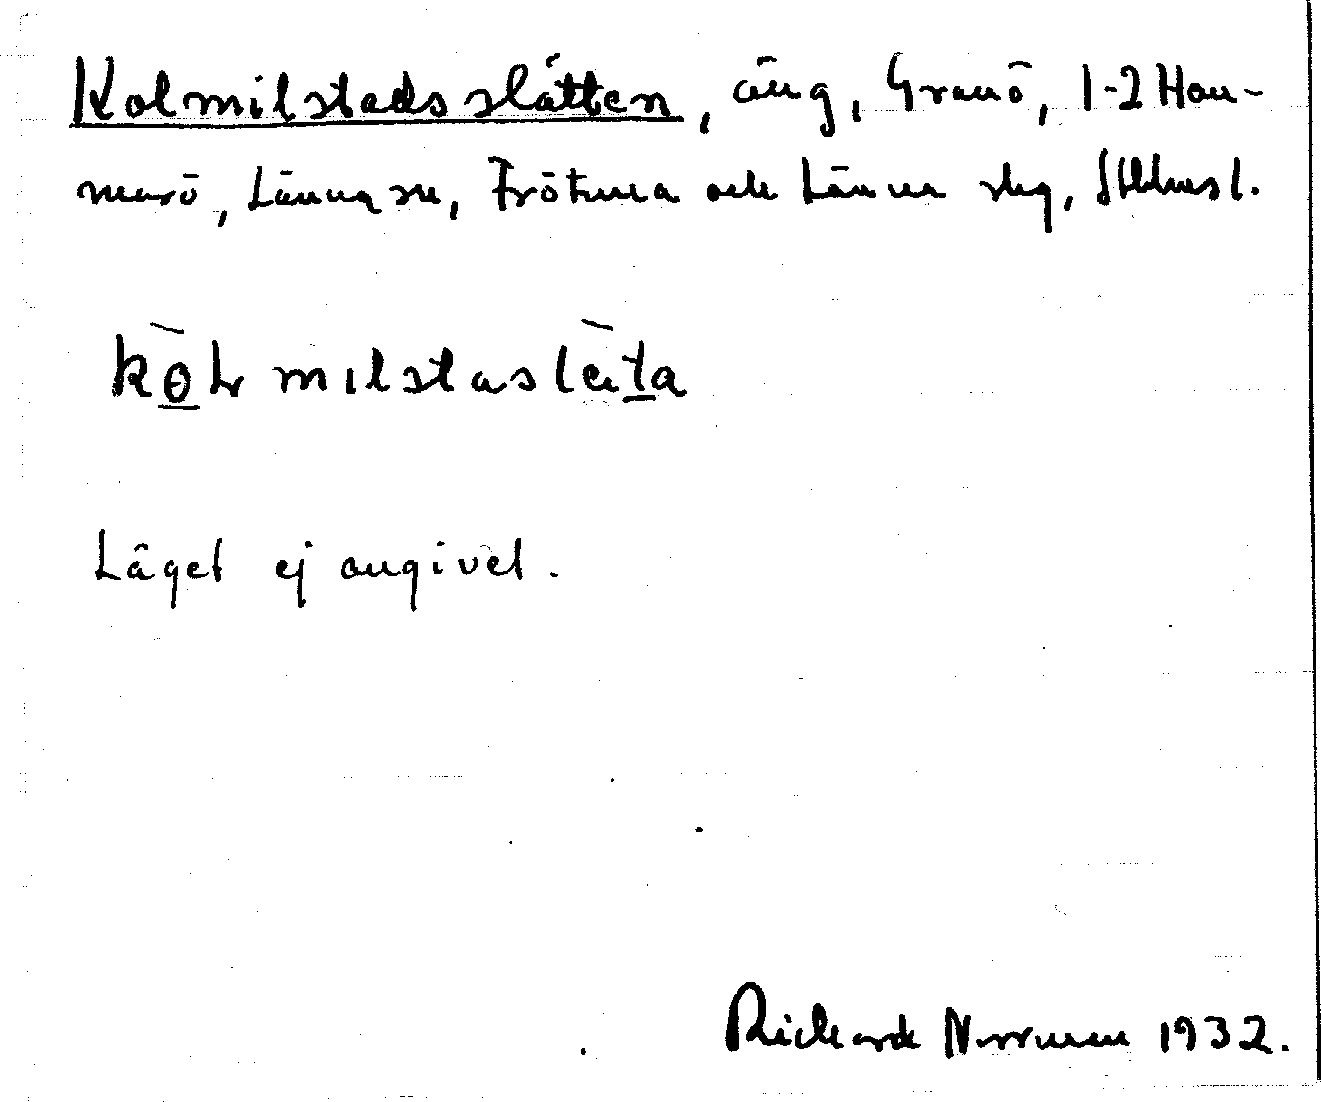 Kolmilstadsslåtten, äng, Granö, 1-2 Ham-
marö, Länna sn, Frötuna och Länna skg, Sthlms l.
Läget ej angivet.
Rickard Norrman 1932.